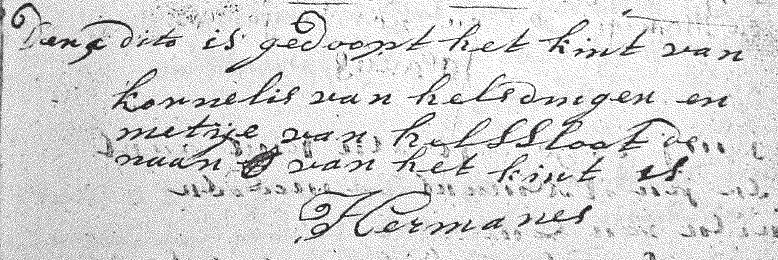 Den 9 dito is gedoopt het kint van
kornelis van helsdingen en
metrije van holsSloot de
naan van het kint is
Hermanes